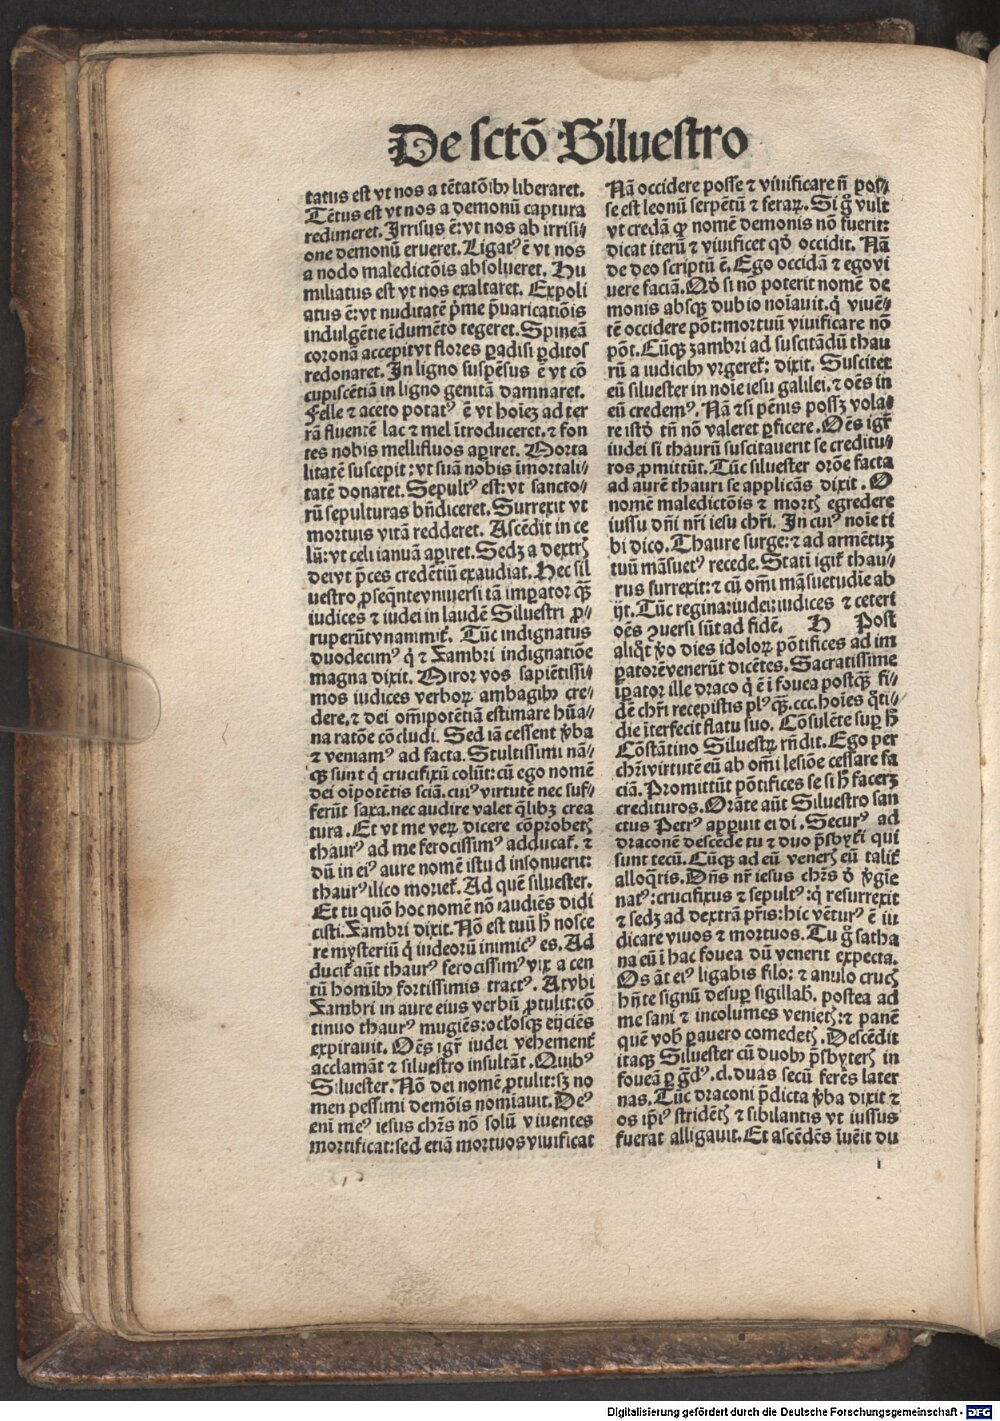 De sctō Siluestro
tatus est vt nos a tētatōibꝰ liberaret.
Tētus est vt nos a demonū captura
redimeret. Irrisus ē: vt nos ab irrisi⸗
one demonū erueret. Ligatꝰ ē vt nos
a nodo maledictōis absolueret. Hu
miliatus est vt nos exaltaret. Expoli
atus ē: vt nuditatē p̄me p̄uaricatiōis
indulgētie īdumēto tegeret. Spineā
coronā accepit vt flores ꝑadisi ꝑditos
redonaret. In ligno suspēsus ē vt cō
cupiscētiā in ligno genitā damnaret.
Felle ⁊ aceto potatꝰ ē vt hoīeꝫ ad ter
rā fluentē lac ⁊ mel ītroduceret. ⁊ fon
tes nobis mellifluos aꝑiret. Morta
litatē suscepit: vt suā nobis īmortali⸗
tatē donaret. Sepultꝰ est: vt sancto⸗
rū sepulturas bn̄diceret. Surrexit vt
mortuis vitā redderet. Ascēdit in ce
lū: vt celi ianuā aꝑiret. Sedꝫ a dextrꝭ
dei vt p̄ces credētiū exaudiat. Hec sil
uestro ꝓseqn̄te vniuersi tā imꝑator qꝫ̄
iudices ⁊ iudei in laudē Siluestri ꝓ⸗
ruperūt vnanimiꝉ. Tūc indignatus
duodecimꝰ q̇ ⁊ Xambri indignatiōe
magna dixit. Miror vos sapiētissi⸗
mos iudices verboꝝ ambagibꝰ cre⸗
dere. ⁊ dei om̄ipotētiā estimare hūa⸗
na ratōe cōcludi. Sed iā cessent ꝟba
⁊ veniamꝰ ad facta. Stultissimi nā⸗
qꝫ sunt q̇ crucifixū colūt: cū ego nomē
dei oīpotētis sciā. cuiꝰ virtutē nec suf⸗
ferūt saxa. nec audire valet q̄libꝫ crea
tura. Et vt me veꝝ dicere cōprobetꝭ
thaurꝰ ad me ferocissimꝰ adducaꝉ. ⁊
dū in eiꝰ aure nomē istud insonuerit:
thaurꝰ ilico morieꝉ. Ad quē siluester.
Et tu quō hoc nomē nō audiēs didi
cisti. Xambri dixit. Nō est tuū h̄ nosce
re mysteriū q̇ iudeorū inimicꝰ es. Ad
duciꝉ aūt thaurꝰ ferocissimꝰ vix a cen
tū hominibꝰ fortissimis tractꝰ. At vbi
Xambri in aure eius verbū ꝓtulit: cō
tinuo thaurꝰ mugiēs: oc̄losqꝫ eijciēs
expirauit. Oēs igr̄ iudei vehementꝉ
acclamāt ⁊ siluestro insultāt. Quibꝰ
Siluester. Nō dei nomē ꝓtulit: sꝫ no
men pessimi demōis nomīauit. Deꝰ
enī meꝰ iesus chrs̄ nō solū viuentes
mortificat: sed etiā mortuos viuificat
Nā occidere posse ⁊ viuificare n̄ pos⸗
se est leonū serpētū ⁊ feraꝝ. Si g̊ vult
vt credā ꝙ nomē demonis nō fuerit:
dicat iterū ⁊ viuificet qd̓ occidit. Nā
de deo scriptū ē. Ego occidā ⁊ ego vi
uere faciā. Qd̓ si nō poterit nomē de
monis absqꝫ dubio noīauit. q̇ viuē⸗
tē occidere pōt: mortuū viuificare nō
pōt. Cūqꝫ zambri ad suscitādū thau
rū a iudicibꝰ vrgereꝉ: dixit. Suscitet
eū siluester in noīe iesu galilei. ⁊ oēs in
eū credemꝰ. Nā ⁊ si pēnis possꝫ vola⸗
re istd̓ tn̄ nō valeret ꝑficere. Oēs igr̄
iudei si thaurū suscitauerit se creditu⸗
ros ꝓmittūt. Tūc siluester orōe facta
ad aurē thauri se applicās dixit. O
nomē maledictōis ⁊ mortꝭ egredere
iussu dn̄i nr̄i iesu chr̄i. In cuiꝰ noīe ti
bi dico. Thaure surge: ⁊ ad armētuꝫ
tuū māsuetꝰ recede. Statī igiꝉ thau⸗
rus surrexit: ⁊ cū om̄i māsuetudīe ab
ijt. Tūc regina: iudei: iudices ⁊ ceteri
oēs ꝯuersi sūt ad fidē. H Post
aliq̊t ꝟo dies idoloꝝ pōtifices ad im
ꝑatorē venerūt dicētes. Sacratissime
iꝑator ille draco q̇ ē ī fouea postqꝫ̄ fi⸗
dē chr̄i recepistis plꝰ qꝫ̄ .ccc. hoīes q̊ti⸗
die īterfecit flatu suo. Cōsulēte suꝑ h̄
Cōstātino Siluestꝝ rn̄dit. Ego per
chr̄i virtutē eū ab om̄i lesiōe cessare fa
ciā. Promittūt pōtifices se si h̄ facerꝫ
credituros. Orāte aūt Siluestro san
ctus Petrꝰ apꝑuit ei di. Securꝰ ad
draconē descēde tu ⁊ duo p̄sbyꝉi qui
sunt tecū. Cūqꝫ ad eū venerꝭ eū taliꝉ
alloq̄ris. Dn̄s nr̄ iesus chrs̄ d̓ ꝟgīe
natꝰ: crucifixus ⁊ sepultꝰ: q̇ resurrexit
⁊ sedꝫ ad dextrā pr̄is: hic vētur̄ꝰ ē iu
dicare viuos ⁊ mortuos. Tu g̊ satha
na eū ī hac fouea dū venerit expecta.
Os āt eiꝰ ligabis filo: ⁊ anulo crucꝭ
hn̄te signū desuꝑ sigillab̓. postea ad
me sani ⁊ incolumes venietꝭ: ⁊ panē
quē vob̓ ꝑauero comedetꝭ. Descēdit
itaqꝫ Siluester cū duobꝰ p̄sbyterꝭ in
foueā ꝑ g̊dꝰ .cl. duas secū ferēs later
nas. Tūc draconi p̄dicta ꝟba dixit ⁊
os ip̄iꝰ stridētꝭ ⁊ sibilantis vt iussus
fuerat alligauit. Et ascēdēs īuēit du
Digitalisierung gefördert durch die Deutsche Forschungsgemeinschaft - DFG